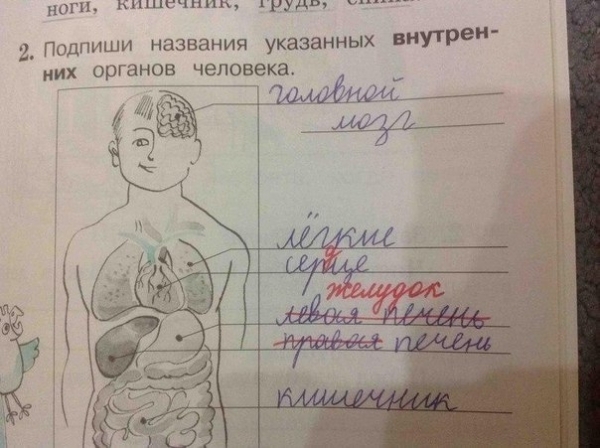 ноги, кишечник, грудь, спин
2. Подпиши названия указанных внутрен-
них органов человека.
головной
мозг
лёгкие
сердце
желудок
левая печень
правая печень
кишечник